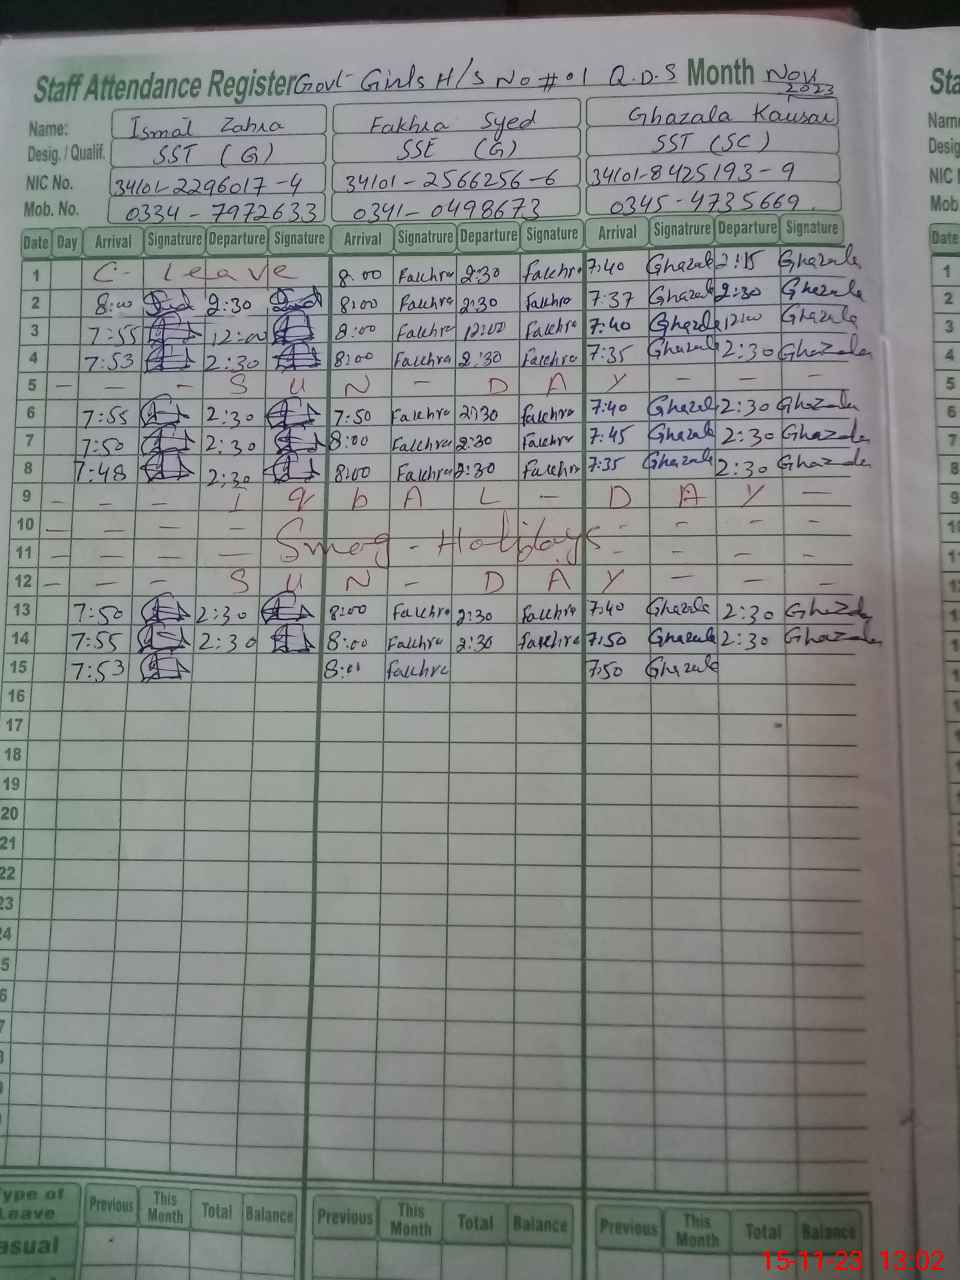 Staff Attendance Register Govt Girls H/S No # 01 Q.D.S Month Nov. 2023
Name: Ismat Zahra Fakhra Syed Ghazala Kausar
Desig. / Qualif. SST (G) SSE (G) SST (SC)
NIC No. 34101-2296017-4 34101-2566256-6 34101-8425193-9
Mob. No. 0334-7972633 0341-0498673 0345-4735669
Date Day Arrival Signatrure Departure Signature Arrival Signatrure Departure Signature Arrival Signatrure Departure Signature
1 C- Leave 8:00 Fakhra 2:30 Fakhra 7:40 Ghazala 2:15 Ghazala
2 8:00 2:30 8:00 Fakhra 2:30 Fakhra 7:37 Ghazala 2:30 Ghazala
3 7:55 12:00 8:00 Fakhra 12:00 Fakhra 7:40 Ghazala 12:00 Ghazala
4 7:53 2:30 8:00 Fakhra 2:30 Fakhra 7:35 Ghazala 2:30 Ghazala
5 - - - S U N - D A Y - - -
6 7:55 2:30 7:50 Fakhra 2:30 Fakhra 7:40 Ghazala 2:30 Ghazala
7 7:50 2:30 8:00 Fakhra 2:30 Fakhra 7:45 Ghazala 2:30 Ghazala
8 7:48 2:30 8:00 Fakhra 2:30 Fakhra 7:35 Ghazala 2:30 Ghazala
9 - - - I q b A L - D A Y -
10 - - - - - - - -
11 - - - - Smog - Holidays - - - -
12 - - - S U N - D A Y - - -
13 7:50 2:30 8:00 Fakhra 2:30 Fakhra 7:40 Ghazala 2:30 Ghazala
14 7:55 2:30 8:00 Fakhra 2:30 Fakhra 7:50 Ghazala 2:30 Ghazala
15 7:53 8:01 Fakhra 7:50 Ghazala
16
17
18
19
20
21
22
23
Type of Leave Previous This Month Total Balance Previous This Month Total Balance Previous This Month Total Balance
asual
15-11-23 13:02
Sta
Name
Desig
NIC
Mob
Date
1
2
3
4
5
6
7
8
9
10